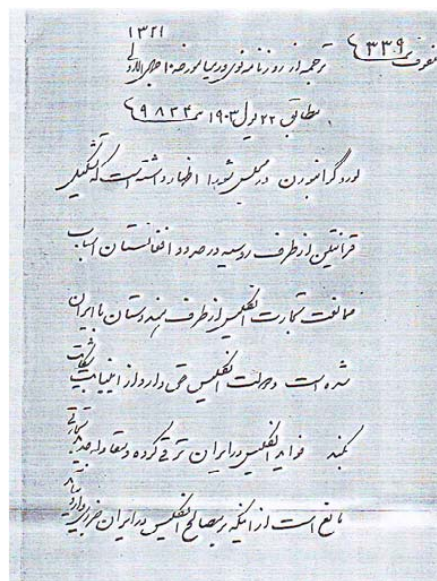 ۱۳۲۱
ملفوف نمره ۳۳۹
ترجمه از روزنامه نوی وریمیا مورخه ۱۰ جمادی الاولی
مطابق ۲۲ ۱۹۰۳ نمره ۹۸۲۴
لورد کرانبورن در مجلس شورا اظهار داشته است که تشکیل
قرانتین از طرف روسیه در حدود افغانستان اسباب
ممانعت تجارت انگلیس از طرف هندوستان با ایران
شده است و دولت انگلیس حق دارد از این بابت شکایت
بکند فواید انگلیس در ایران ترقی کرده و مقاوله جدید تجارتی
مانع است از اینکه بر مصالح انگلیس در ایران ضرری وارد بیاید